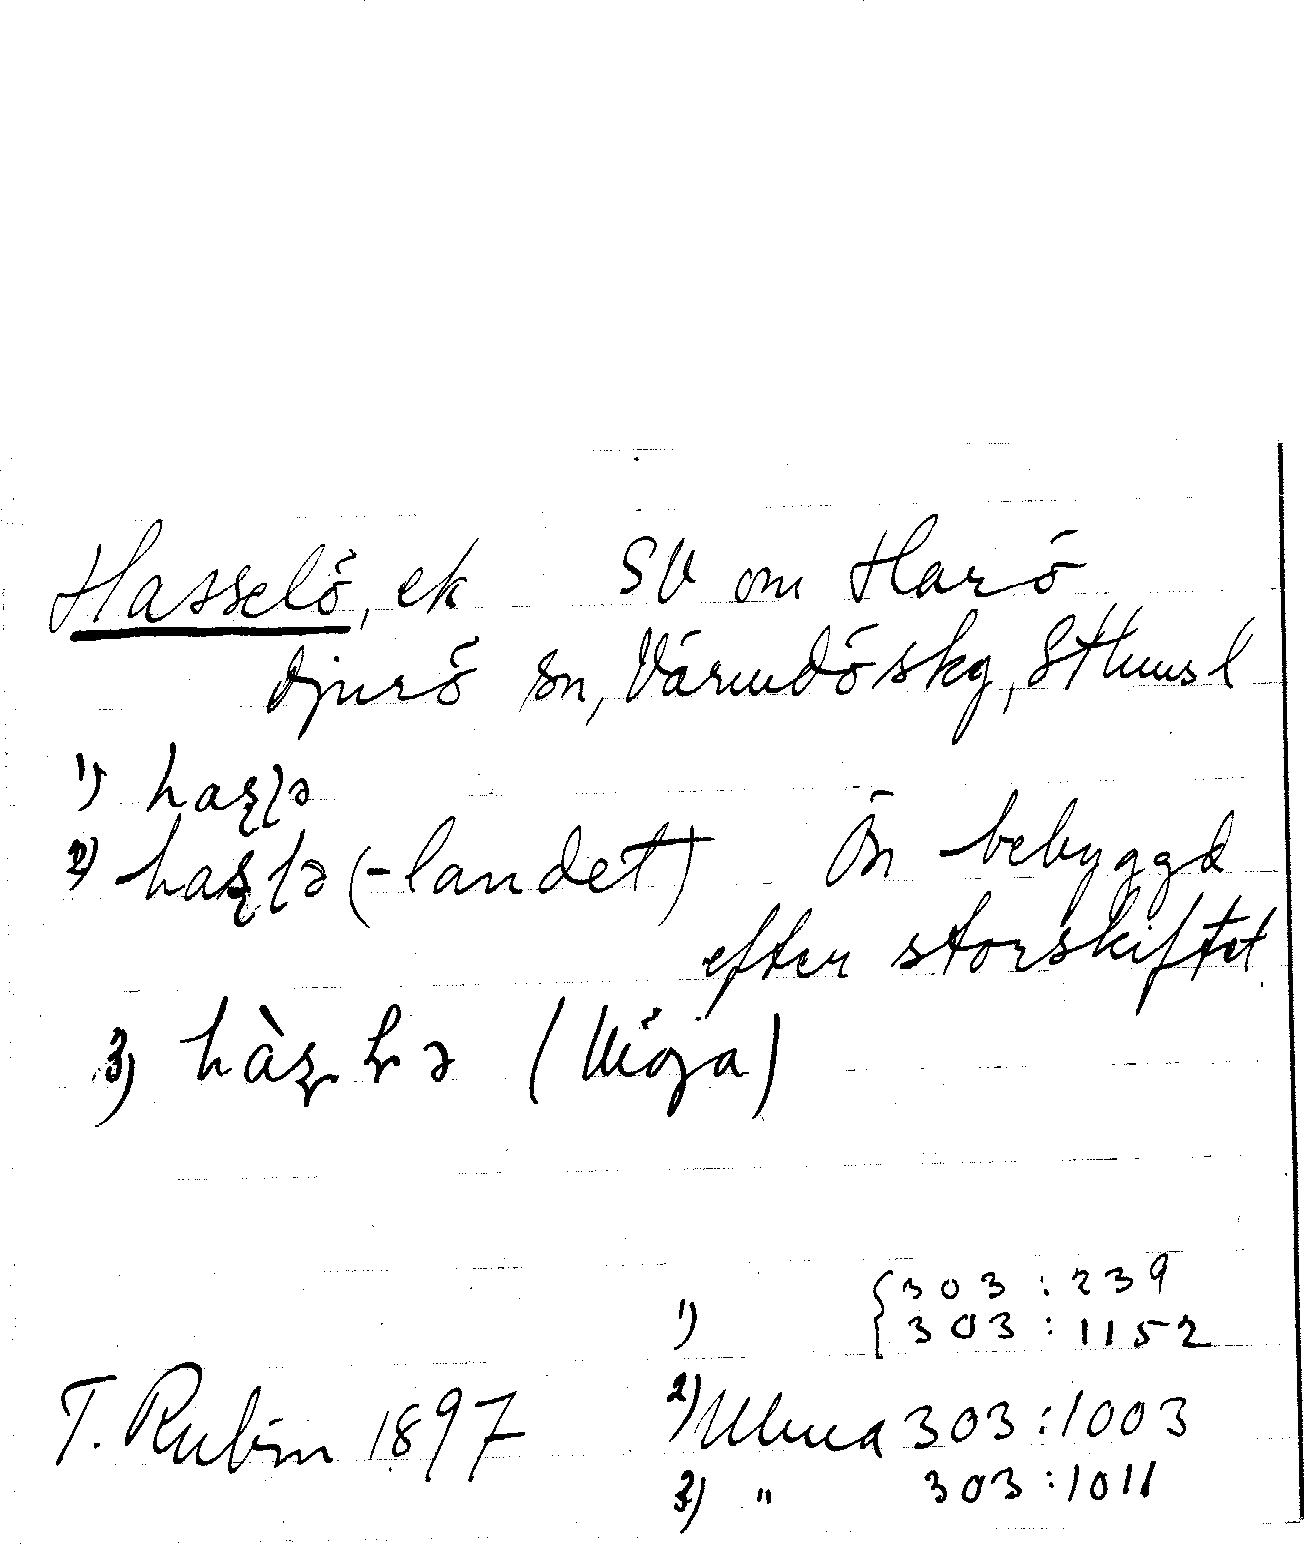 Hasselö, ek SV om Harö
Djurö sn, Värmdö skg, Sthmsl
1) haʂɭə
2) haʂɭə (-landet) Ön bebyggd
efter storskiftet
3) (Möja)
1) {303:239
303:1152
T. Rubin 1897 2) Ulma 303:1003
3) " 303:1011